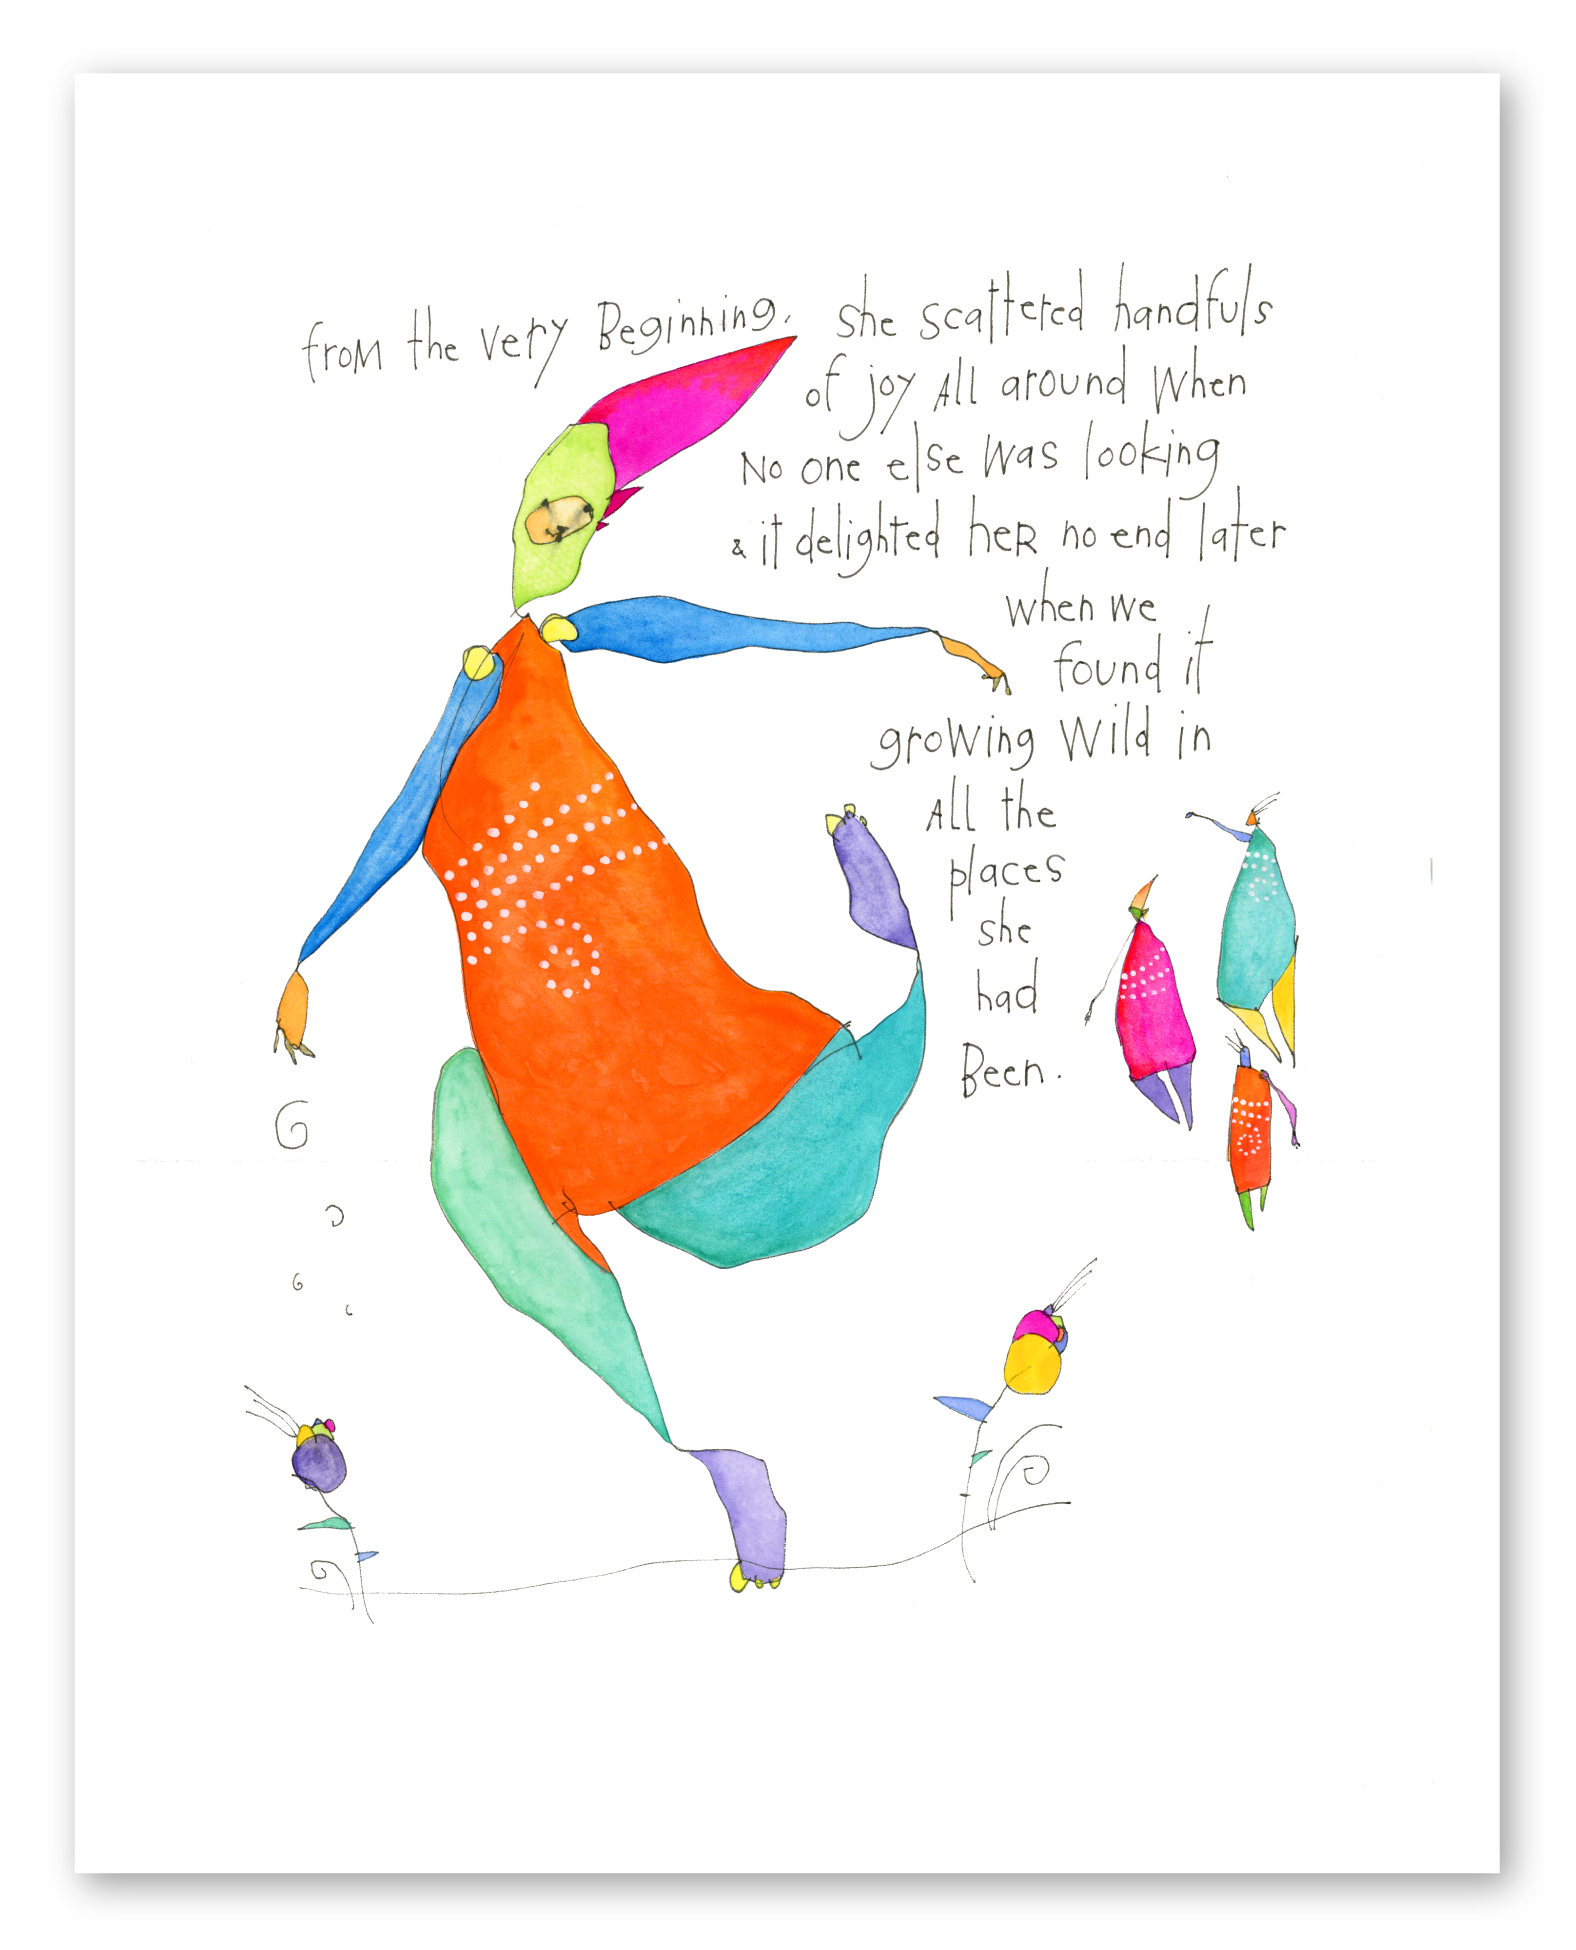 from the very Beginning, she scattered handfuls
of joy All around When
No one else was looking
& it delighted heR no end later
when we
found it
growing Wild in
All the
places
she
had
Been.